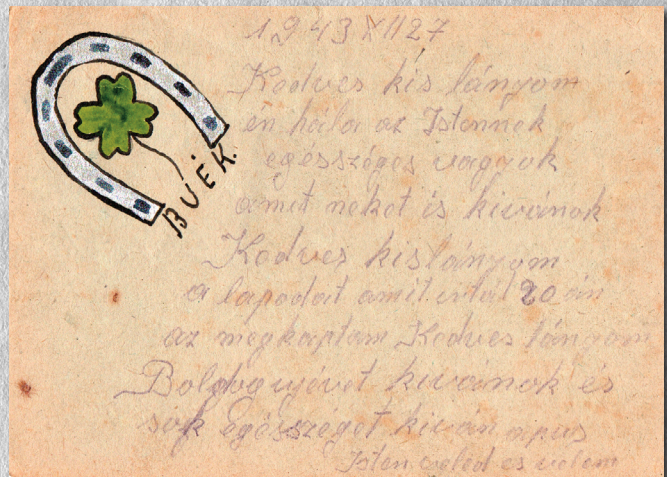 1943 XII 27
B. Ú. É. K.
Kedves kis lányom
én hála az Istennek
egésséges vagyok
amit neket is kivánok
Kedves kislányom
a lapodat amit irtál 20 án
az megkaptam Kedves lányom
Boldog ujévet kivánok és
sok egésséget kiván apus
Isten veled és velem